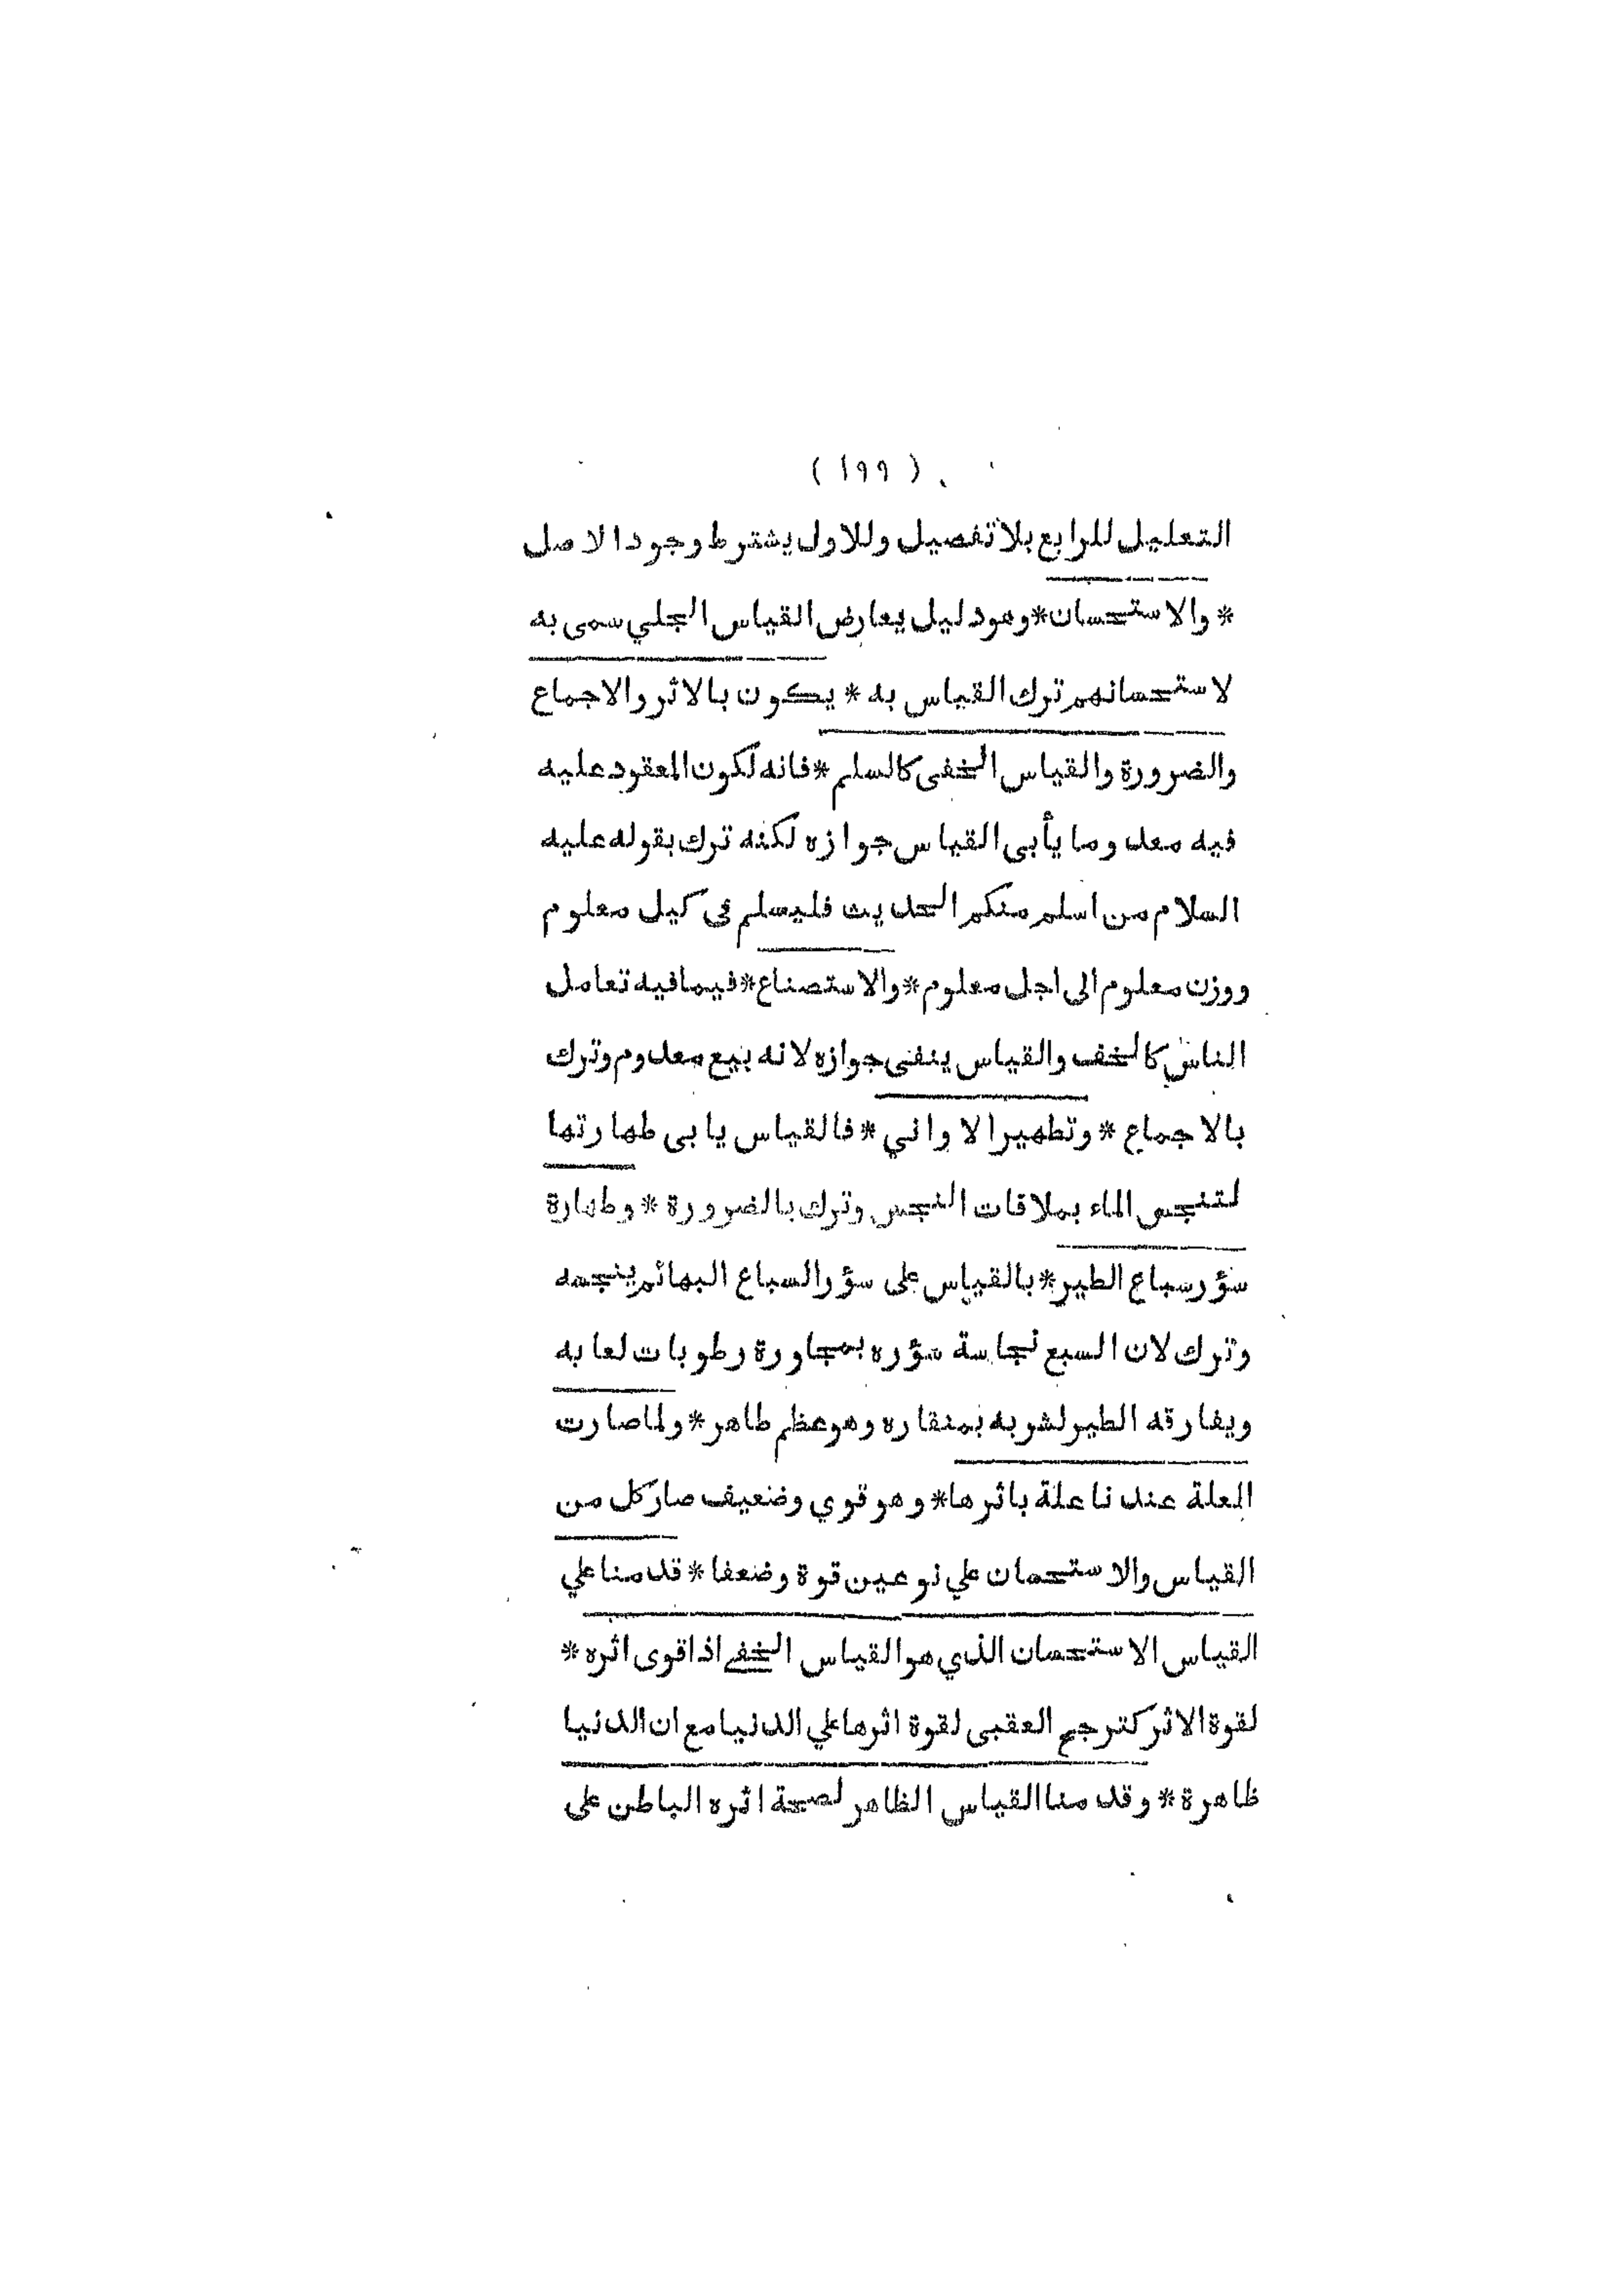 ( ١٩٩ )
التعليل للرابع بلا تفصيل وللاول يشترط وجود الاصل
* والاستحسان * وهو دليل يعارض القياس الجلي سمى به
لاستحسانهم ترك القياس به * يكون بالاثر والاجماع
والضرورة والقياس الخفى كالسلم * فانه لكون المعقود عليه
فيه معدوما يأبى القياس جوازه لكنه ترك بقوله عليه
السلام من اسلم منكم الحديث فليسلم فى كيل معلوم
ووزن معلوم الى اجل معلوم * والاستصناع * فيما فيه تعامل
الناس كالخف والقياس ينفى جوازه لانه بيع معدوم وترك
بالاجماع * وتطهير الاواني * فالقياس يابى طهارتها
لتنجس الماء بملاقات النجس وترك بالضرورة * وطهارة
سؤر سباع الطير * بالقياس على سؤر السباع البهائم ينجسه
وترك لان السبع نجاسة سؤره بمجاورة رطوبات لعابه
ويفارقه الطير لشربه بمنقاره وهو عظم طاهر * ولما صارت
العلة عندنا علة باثرها * وهو قوي وضعيف صار كل من
القياس والاستحسان علي نوعين قوة وضعفا * قدمنا علي
القياس الاستحسان الذي هو القياس الخفي اذا قوى اثره *
لقوة الاثر كترجح العقبى لقوة اثرها علي الدنيا مع ان الدنيا
ظاهرة * وقدمنا القياس الظاهر لصحة اثره الباطن على